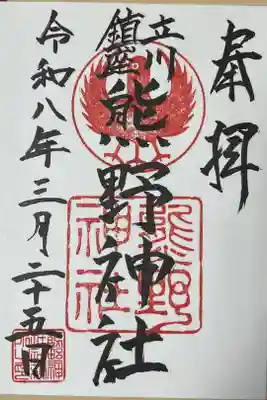 奉拝
立川
鎮座
熊野神社
熊野
神社
令和八年三月二十五日